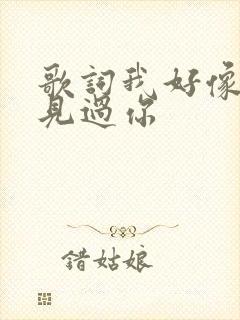 歌詞我好像
見過你
錯姑娘